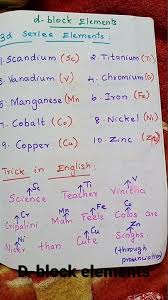 d-block Elements
3d Series Elements:
1. Scandium (Sc) 2. Titanium (Ti)
3. Vanadium (V) 4. Chromium (Cr)
5. Manganese (Mn 6. Iron (Fe)
7. Cobalt (Co) 8. Nickel (Ni)
9. Copper (Cu) 10. Zinc
Trick in English:
Sc Ti V
Science Teacher Vinitha
Cr Mn Fe Co
Mam Feels Colas are
Ni Cu Zn
Nicer than Cute
(through
pronunciation)
D-block elements